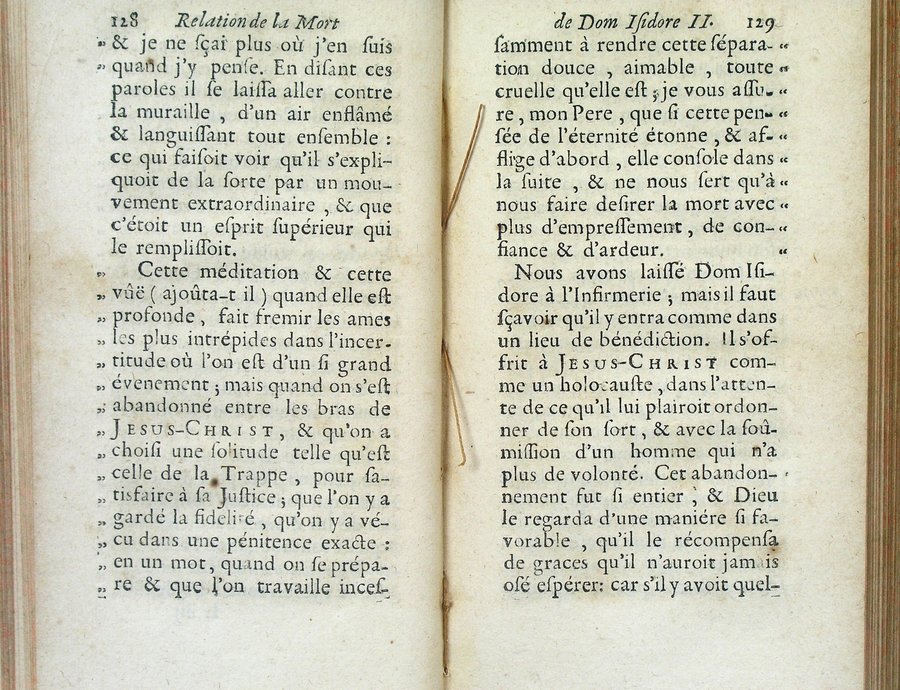 128 Relation de la Mort
„ & je ne ſçai plus où j'en ſuis
„ quand j'y penſe. En diſant ces
paroles il ſe laiſſa aller contre
la muraille , d'un air enflâmé
& languiſſant tout enſemble :
ce qui faiſoit voir qu'il s'expli-
quoit de la ſorte par un mou-
vement extraordinaire , & que
c'étoit un eſprit ſupérieur qui
le rempliſſoit.
„ Cette méditation & cette
„ vûë ( ajoûta-t il ) quand elle eſt
„ profonde , fait fremir les ames
„ les plus intrépides dans l'incer-
„ titude où l'on eſt d'un ſi grand
„ évenement ; mais quand on s'eſt
„ abandonné entre les bras de
„ JESUS-CHRIST, & qu'on a
„ choiſi une ſolitude telle qu'eſt
„ celle de la Trappe , pour ſa-
„ tisfaire à ſa Juſtice ; que l'on y a
„ gardé la fidelité , qu'on y a vé-
„ cu dans une pénitence exacte :
„ en un mot, quand on ſe prépa-
„ re & que l'on travaille inceſ-
de Dom Iſidore II. 129
ſamment à rendre cette ſépara- “
tion douce , aimable , toute “
cruelle qu'elle eſt ; je vous aſſu- “
re , mon Pere , que ſi cette pen- “
ſée de l'éternité étonne , & af- “
flige d'abord , elle conſole dans “
la ſuite , & ne nous ſert qu'à “
nous faire deſirer la mort avec “
plus d'empreſſement , de con- “
fiance & d'ardeur. “
Nous avons laiſſé Dom Iſi-
dore à l'Infirmerie ; mais il faut
ſçavoir qu'il y entra comme dans
un lieu de bénédiction. Il s'of-
frit à JESUS-CHRIST com-
me un holocauſte , dans l'atten-
te de ce qu'il lui plairoit ordon-
ner de ſon ſort , & avec la ſoû-
miſſion d'un homme qui n'a
plus de volonté. Cet abandon-
nement fut ſi entier , & Dieu
le regarda d'une maniére ſi fa-
vorable , qu'il le récompenſa
de graces qu'il n'auroit jamais
oſé eſpérer: car s'il y avoit quel-